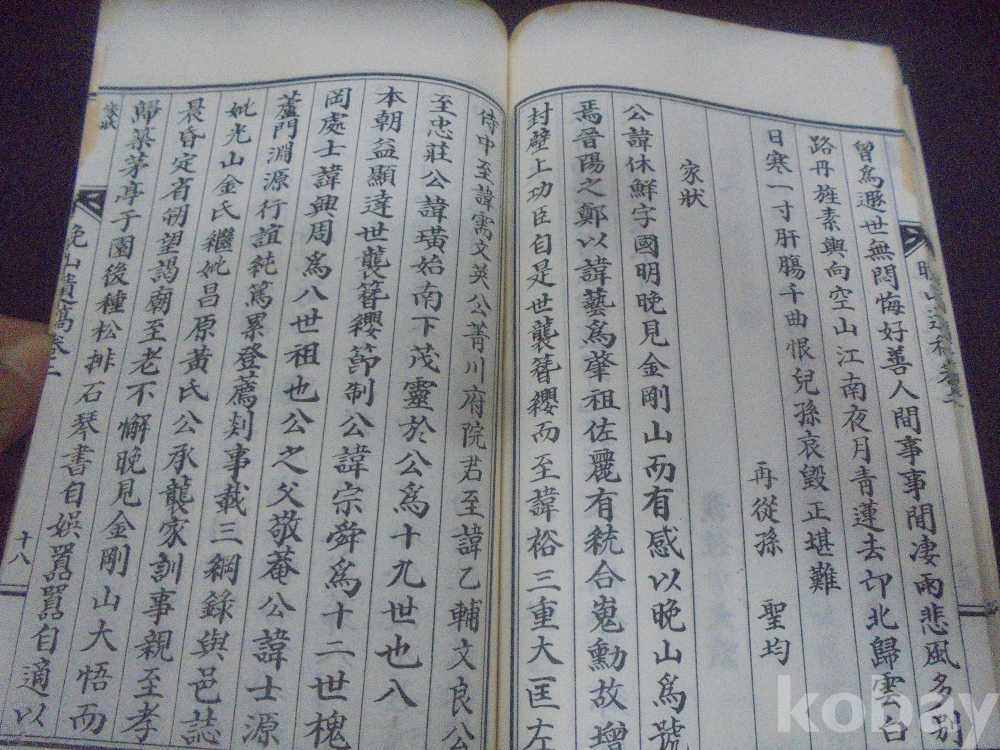 曾爲遯世無悶悔好善人間事事間凄雨悲風多別
路丹旌素輿向空山江南夜月靑蓮去卬北歸雲白
日寒一寸肝膓千曲恨兒孫哀毀正堪難
再從孫 聖均
家狀
公諱休鮮字國明晚見金剛山而有感以晚山爲號
焉晉陽之鄭以諱藝爲肇祖佐麗有統合嵬勳故增
封壁上功臣自是世襲簪纓而至諱裕三重大匡左
侍中至諱需文英公菁川府院君至諱乙輔文良公
至忠莊公諱璜始南下茂靈於公爲十九世也八
本朝益顯達世襲簪纓節制公諱宗舜爲十二世槐
岡處士諱興周爲八世祖也公之父敬菴公諱士源
蘆門淵源行誼純篤累登薦剡事載三綱錄與邑誌
妣光山金氏繼妣昌原黃氏公承襲家訓事親至孝
晨昏定省朔望謁廟至老不懈晚見金剛山大悟而
歸築茅亭子園後種松排石琴書自娛囂囂自適以
家狀
晚山遺稿卷二
十八